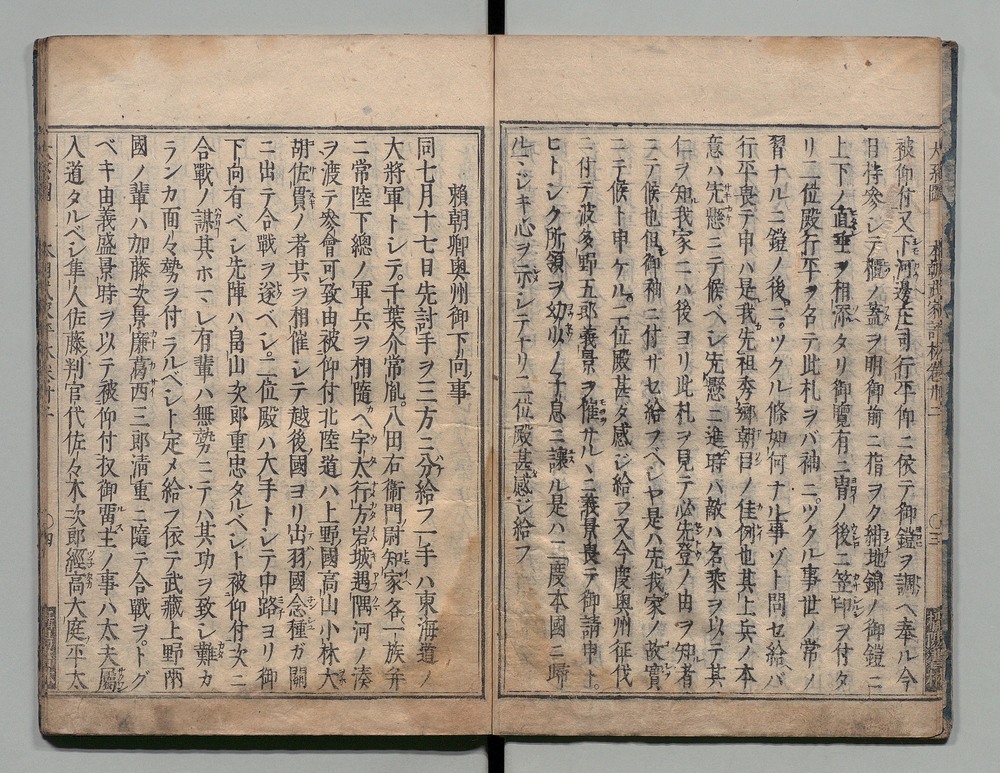 被仰付又下河邊庄司行平仰ニ依テ御鎧ヲ調ヘ奉ル今
日持参シテ櫃ノ蓋ヲ明御前ニ指ヲク紺地錦ノ御鎧ニ
上下ノ直垂ヲ相添タリ御覧有ニ冑ノ後ニ笠印ヲ付タ
リ二位殿行平ヲ名テ此札ヲバ袖ニツクル事世ノ常ノ
習ナルニ鎧ノ後ニツクル條如何ナル事ゾト問セ給ヘバ
行平畏テ申ハ是我先祖秀郷朝臣ノ佳例也其上兵ノ本
意ハ先懸ニテ候ベシ先懸ニ進時バ敵ハ名乗ヲ以テ其
仁ヲ知我家ニハ後ヨリ此札ヲ見テ必先登ノ由ヲ知者
ニテ候也但御袖ニ付サセ給フベシヤ是ハ先我家ノ故實
ニテ候ト申ケル二位殿甚タ感ジ給フ又今度奥州征伐
ニ付テ波多野五郎義景ヲ催サル、ニ義景畏テ御請申ト
ヒトシク所領ヲ幼少ノ子息ニ讓ル是ハ二度本國ニ歸
ルマジキ心ヲ示シテナリ二位殿甚感ジ給フ
賴朝卿奥州御下向事
同七月十七日先討手ヲ三方ニ分給フ一手ハ東海道ノ
大將軍トシテ千葉介常胤八田右衛門尉知家各一族并
ニ常陸下總ノ軍兵ヲ相隨ヘ宇太行方岩城遇隅河ノ湊
ヲ渡テ參會可致由被仰付北陸道ハ上野國高山小林大
胡佐貫ノ者共ヲ相催シテ越後國ヨリ出羽國念種ガ關
ニ出テ合戰ヲ遂ベシ二位殿ハ大手トシテ中路ヨリ御
下向有ベシ先陣ハ畠山次郎重忠タルベント被仰付次ニ
合戰ノ謀其ホマレ有輩ハ無勢ニテハ其功ヲ致シ難カ
ランカ面々勢ヲ付ラルヘント定メ給フ依テ武藏上野兩
國ノ輩ハ加藤次景廉葛西三郎清重ニ隨テ合戰ヲトグ
ベキ由義盛景時ヲ以テ被仰付扨御留主ノ事ハ太夫屬
入道タルベシ隼人佐藤判官代佐々木次郎經高大庭平太